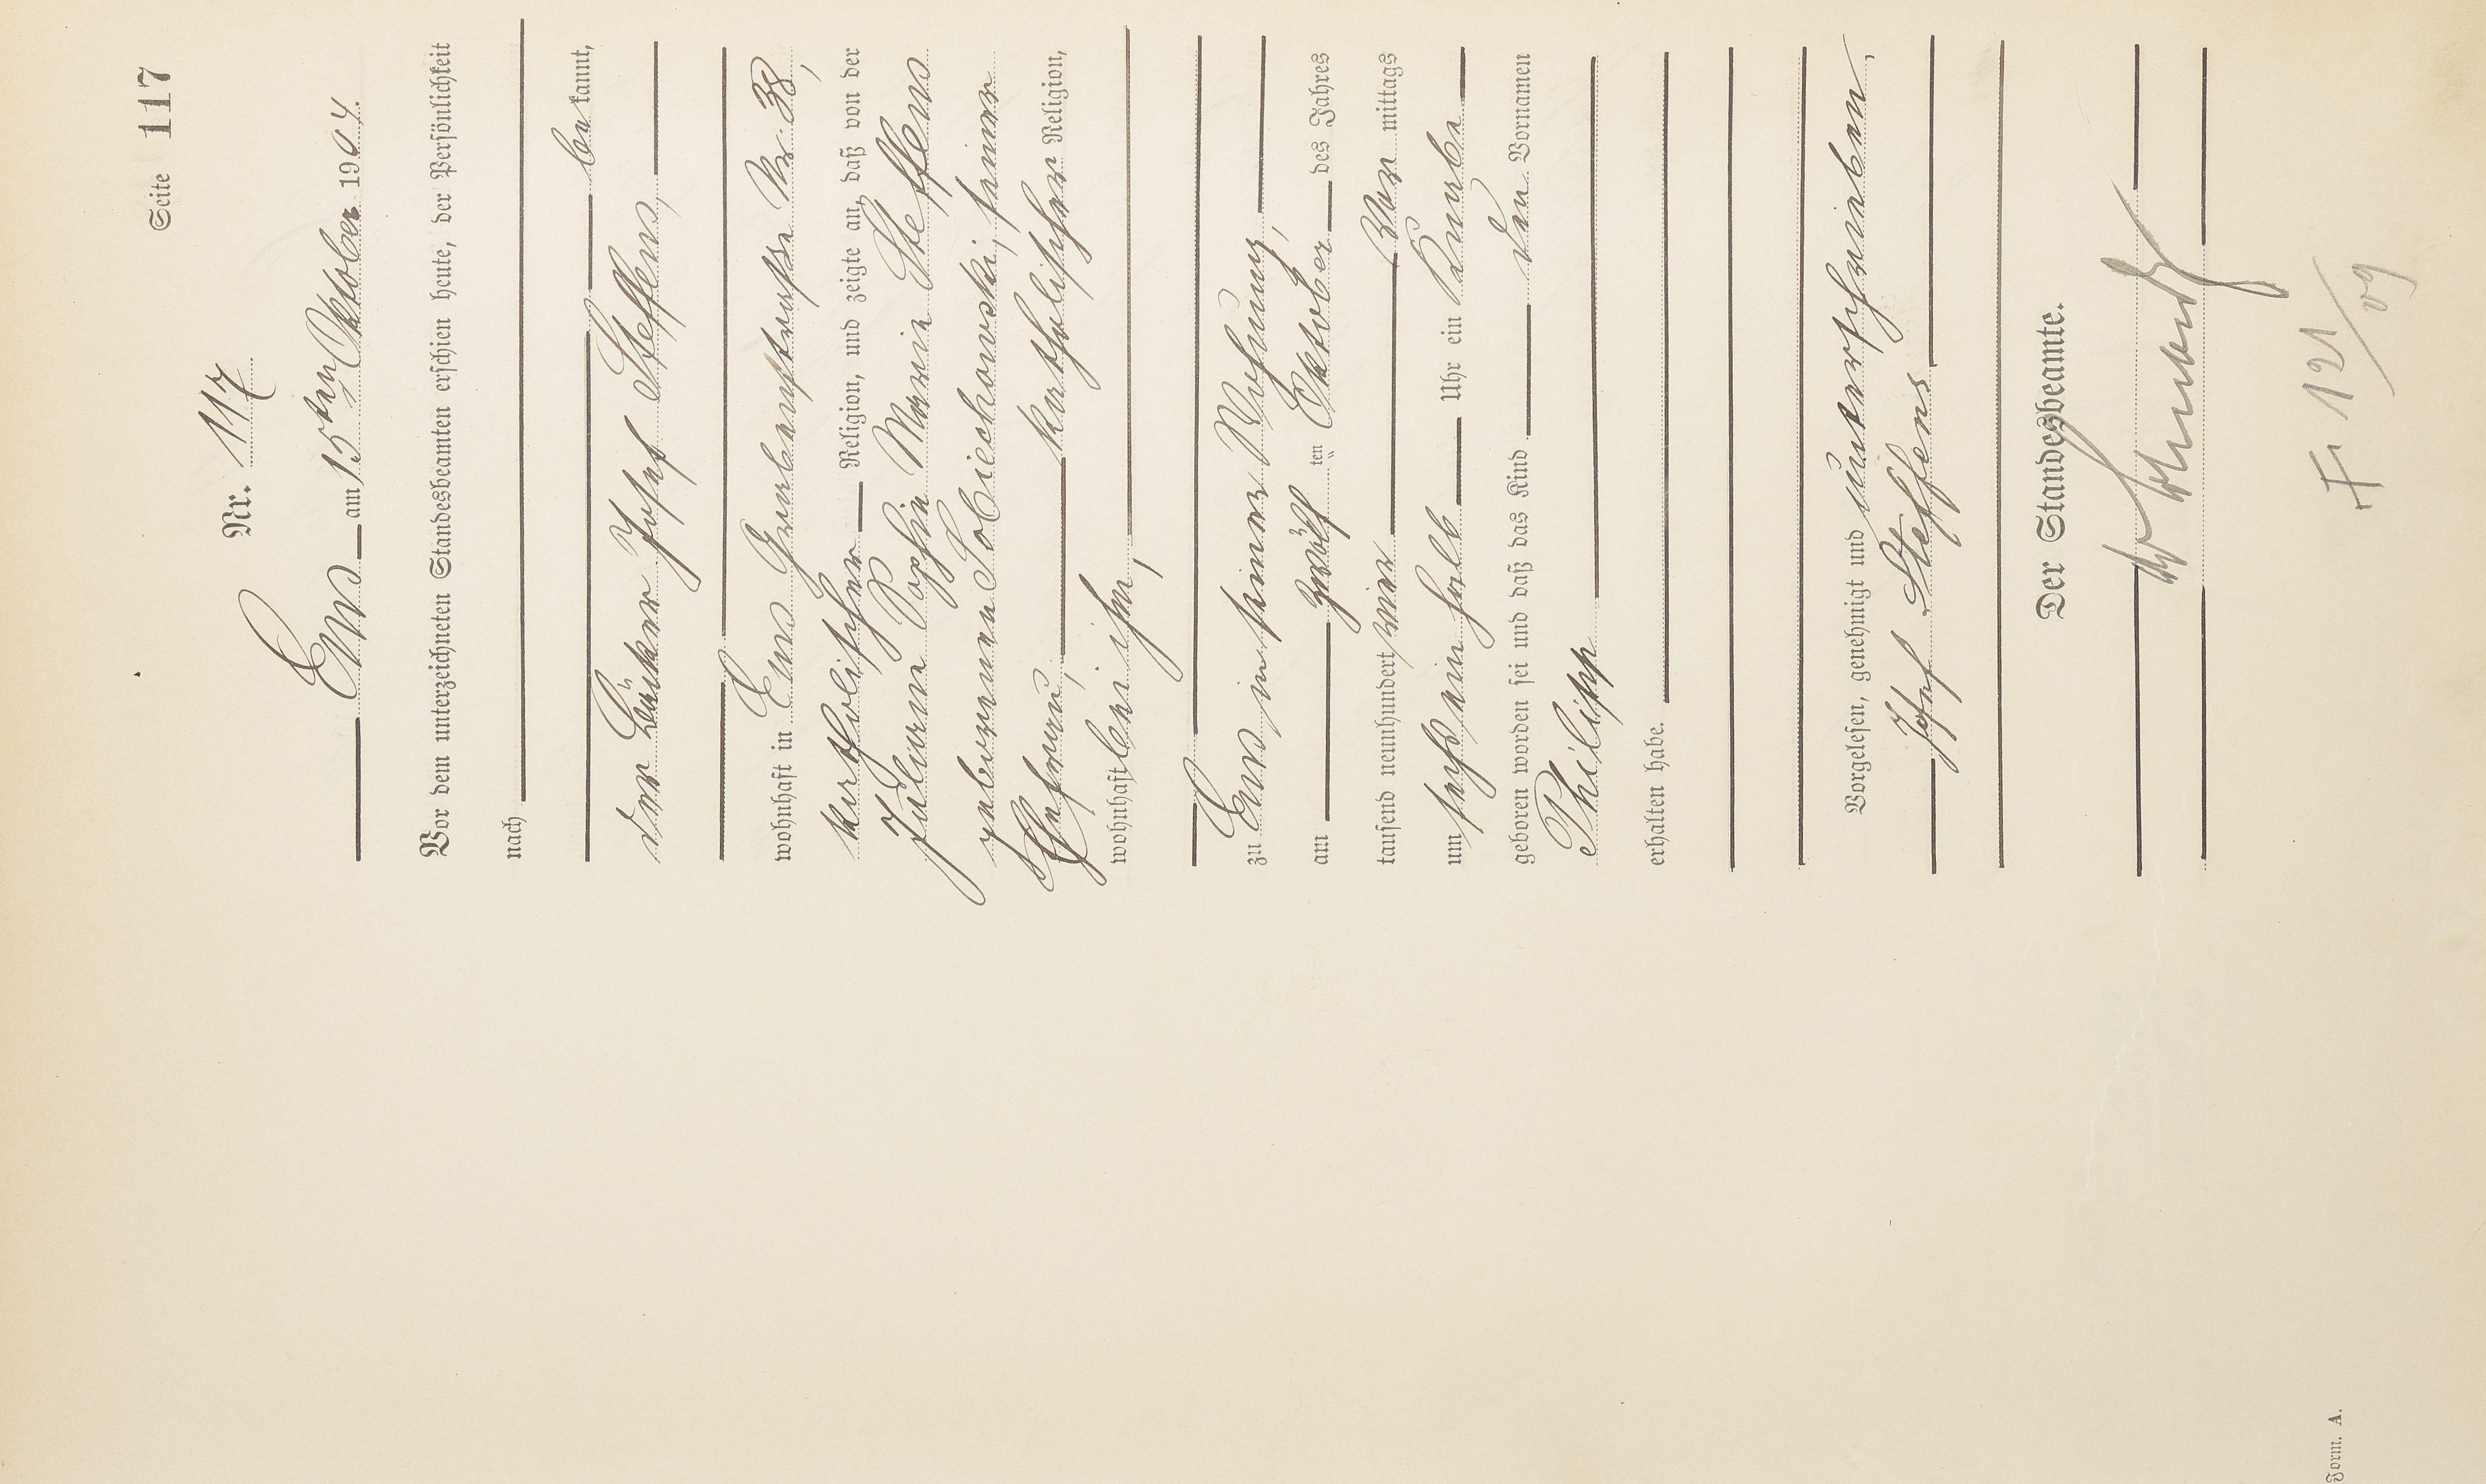 Seite 117
Nr. 117
Ems am 15ten Oktober 1904.
Vor dem unterzeichneten Standesbeamten erschien heute, der Persönlichkeit
nach
be kannt,
der Bäcker Josef Steffens,
wohnhaft in Ems Grabenstrasse Nr. 38,
katholischer Religion, und zeigte an, daß von der
Juliana Sophie Marie Steffens
geborenen Sobiechowski, seiner
Ehefrau, katholischer Religion,
wohnhaft bei ihm,
zu Ems in seiner Wohnung,
am zwölf ten Oktober des Jahres
tausend neunhundert vier Vor mittags
um sechs ein halb Uhr ein Knabe
geboren worden sei und daß das Kind den Vornamen
Philipp
erhalten habe.
Vorgelesen, genehmigt und unterschrieben
Josef Steffens
Der Standesbeamte.
F. 121/09
Form. A.